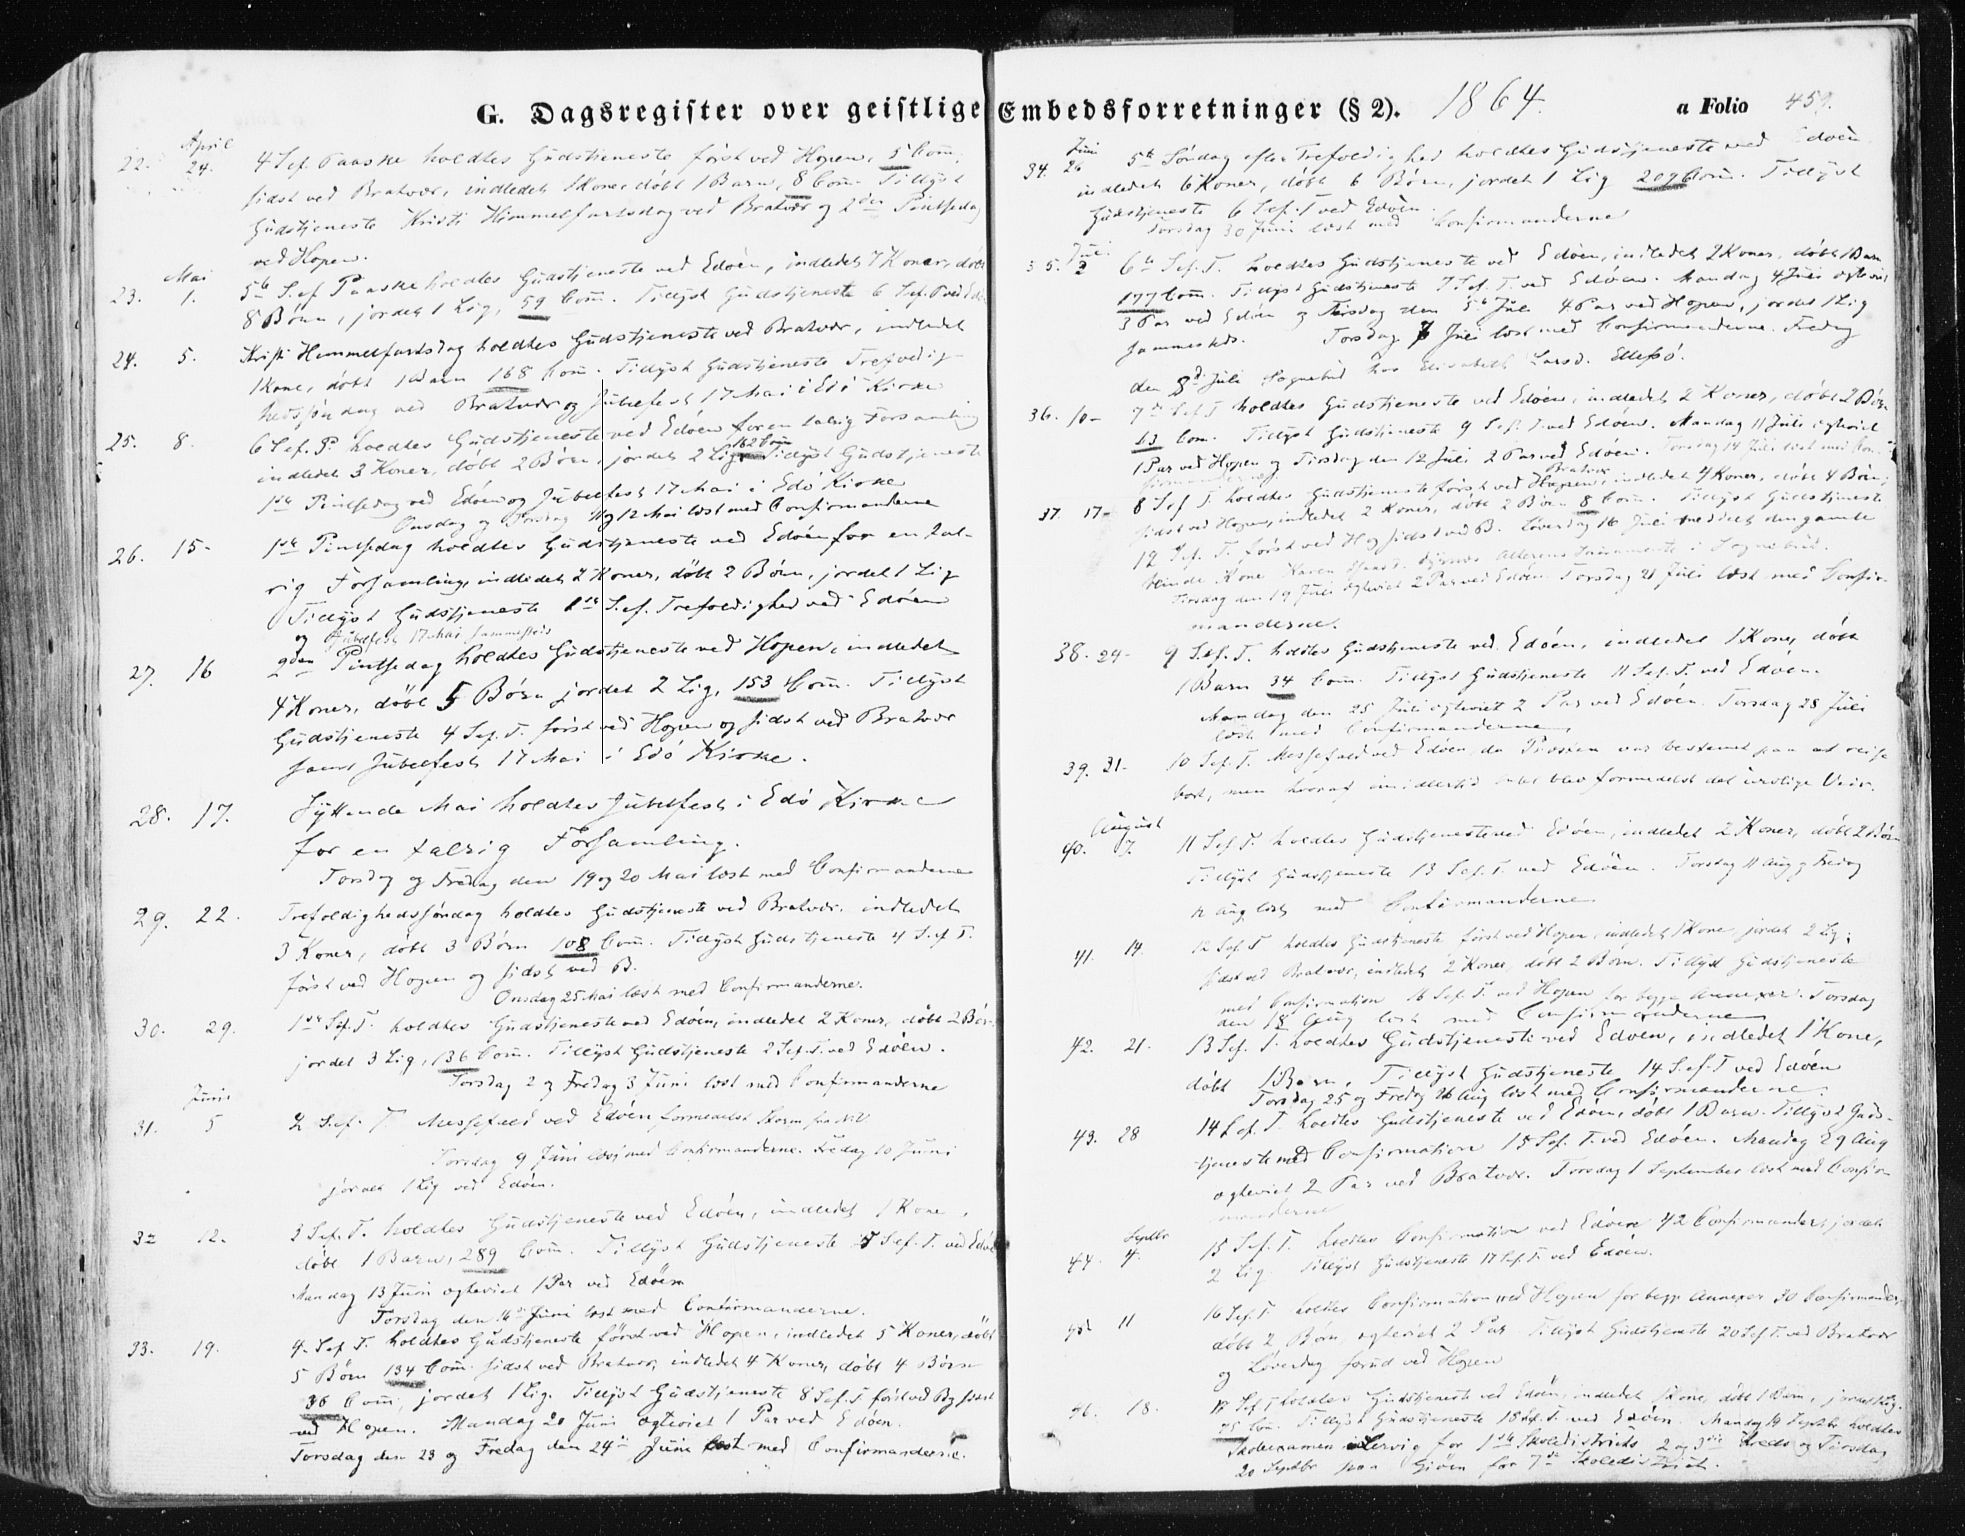 G. Dagsregister over geistlige Embedsforretninger (§ 2). 1864. a Folio 459.
April
22. 24. 4 S. ef. Paaske holdtes Gudstjeneste først ved Hopen, 5 Com.
sidst ved Bratvær, indledet 1 Kone, døbt 1 Barn, 8 Com. Tillyst
Gudstjeneste Kristi Himmelfartsdag ved Bratvær og 2den Pintsedag
ved Hopen.
Mai
23. 1. 5te S. ef. Paaske holdtes Gudstjeneste ved Edøen, indledet 7 Koner, døbt
8 Børn, jordet 1 Lig, 59 Com. Tillyst Gudstjeneste 6 S. ef. P. ved Edø.
24. 5. Kristi Himmelfartsdag holdtes Gudstjeneste ved Bratvær, indledet
1 Kone, døbt 1 Barn 168 Com. Tillyst Gudstjeneste Trefoldig-
hedssøndag ved Bratvær og Jubelfest 17 Mai i Edø Kirke
25. 8. 6 S. ef. P. holdtes Gudstjeneste ved Edøen for en talrig Forsamling
162 Com
indledet 3 Koner, døbt 2 Børn, jordet 2 Lig. Tillyst Gudstjeneste
1ste Pintsedag ved Edøen og Jubelfest 17 Mai i Edø Kirke
Onsdag og Torsdag 11 og 12 Mai læst med Confirmanderne
26. 15 - 1ste Pintsedag holdtes Gudstjeneste ved Edøen for en tal-
rig Forsamling, indledet 2 Koner, døbt 2 Børn, jordet 1 Lig
Tillyst Gudstjeneste 1ste S. ef. Trefoldighed ved Edøen
og Jubelfest 17 Mai sammesteds
27. 16 2den Pintsedag holdtes Gudstjeneste ved Hopen, indledet
4 Koner, døbt 5 Børn jordet 2 Lig, 153 Com. Tillyst
Gudstjeneste 4 S. ef. T. først ved Hopen og sidst ved Bratvær
samt Jubelfest 17 Mai i Edø Kirke.
28. 17. Syttende Mai holdtes Jubelfest i Edø Kirke
for en talrig Forsamling.
Torsdag og Fredag den 19 og 20 Mai læst med Confirmanderne
29. 22. Trefoldighedssøndag holdtes Gudstjeneste ved Bratvær. indledet
3 Koner, døbt 3 Børn 108 Com. Tillyst Gudstjeneste 4 S. ef. T.
først ved Hopen og sidst ved B.
Onsdag 25 Mai læst med Confirmanderne.
30. 29. 1ste S. ef. T. holdtes Gudstjeneste ved Edøen, indledet 2 Koner, døbt 2 Bør-
jordet 3 Lig, 136 Com. Tillyst Gudstjeneste 2 S. ef. T. ved Edøen.
Torsdag 2 og Fredag 3 Juni læst med Confirmanderne
Juni
31. 5 2 S. ef. T. Messefald ved Edøen formedelst Storm
Torsdag 9 Juni læst med Confirmanderne. Fredag 10 Juni
jordet 1 Lig ved Edøen.
32 12. 3 S. ef. T. holdtes Gudstjeneste ved Edøen, indledet 1 Kone,
døbt 1 Barn, 289 Com. Tillyst Gudstjeneste 5 S. ef. T. ved Edøe
Mandag 13 Juni egteviet 1 Par ved Edøen
Torsdag den 16de Juni læst med Confirmanderne.
33. 19. 4. S. ef. T. holdtes Gudstjeneste først ved Hopen, indledet 5 Koner, døbt
5 Børn 134 Com. sidst ved Bratvær, indledet 4 Koner, døbt 4 Børn
36 Com, jordet 1 Lig. Tillyst Gudstjeneste 8 S. ef. T. først ved B og sidst
ved Hopen. Mandag 20 Juni egteviet 1 Par ved Edøen.
Torsdag den 23 og Fredag den 24de Juni læst med Confirmanderne.
Juni
34. 26 5te Søndag efter Trefoldighed holdtes Gudstjeneste ved Edøen
indledet 6 Koner, døbt 6 Børn, jordet 1 Lig 209 Com. Tillyst
Gudstjeneste 6 S. ef. T ved Edøen.
Torsdag 30 Juni læst med Confirmanderne
Juli
35. 3 6te S. ef. T. holdtes Gudstjeneste ved Edøen, indledet 2 Koner, døbt 1 Barn
177 Com. Tillyst Gudstjeneste 7 S. ef. T. ved Edøen. Mandag 4 Juli egteviet
3 Par ved Edøen og Tirsdag den 5te Juli 4 Par ved Hopen, jordet 1 Lig
sammesteds. Torsdag 7 Juli læst med Confirmanderne. Fredag
den 8de Juli Sognebud hos Elisabeth Larsd. Ellefsø.
36. 10 - 7de S. ef. T holdtes Gudstjeneste ved Edøen, indledet 2 Koner, døbt 2 Børn
63 Com. Tillyst Gudstjeneste 9 S. ef. T. ved Edøen. Mandag 11 Juli egteviet
1 Par ved Hopen og Tirsdag den 12 Juli 2 Par ved Edøen. Torsdag 14 Juli læst med Con-
firmanderne
Bratvær
37. 17 - 8 S. ef. T. holdtes Gudstjeneste først ved Hopen, indledet 4 Koner, døbt 4 Børn;
sidst ved Hopen, indledet 2 Koner, døbt 2 Børn 8 Com. Tillyst Gudstjeneste
12 S. ef. T. først ved H og sidst ved B. Løverdag 16 Juli meddelt den gamle
blinde Kone Karen Alterens Sacramente i Sognebud.
Tirsdag den 19 Juli egteviet 2 Par ved Edøen Torsdag 21 Juli læst med Confir-
manderne.
38. 24 - 9 S. ef. T. holdtes Gudstjeneste ved Edøen, indledet 1 Kone, døbt
1 Barn 34 Com. Tillyst Gudstjeneste 11 S. ef. T. ved Edøen.
Mandag den 25 Juli egteviet 2 Par ved Edøen. Torsdag 28 Juli
læst med Confirmanderne
39. 31 - 10 S. ef. T. Messefald ved Edøen, da Præsten var bestemt paa at reise
bort, men hvoraf imidlertid intet blev formedelst det urolige Veir.
August
40. 7. 11 S. ef. T. holdtes Gudstjeneste ved Edøen, indledet 2 Koner, døbt 2 Børn
Tillyst Gudstjeneste 13 S. ef. T. ved Edøen. Torsdag 11 Aug og Fredag
12 Aug læst med Confirmanderne
41. 14. 12 S. ef. T holdtes Gudstjeneste først ved Hopen, indledet 1 Kone jordet 2 Lig;
sidst ved Bratvær, indledet 2 Koner, døbt 2 Børn. Tillyst Gudstjeneste
med Confirmation 16 S. ef. T. ved Hopen for begge Annexer. Torsdag
den 18 Aug læst med Confirmanderne
42. 21. 13 S. ef. T. holdtes Gudstjeneste ved Edøen, indledet 1 Kone,
døbt 1 Barn, Tillyst Gudstjeneste 14 S. ef. T ved Edøen
Torsdag 25 og Fredag 26 Aug læst med Confirmanderne.
43. 28 14 S. ef. T. holdtes Gudstjeneste ved Edøen, døbt 1 Barn. Tillyst Guds-
tjeneste med Confirmation 15 S. ef. T. ved Edøen. Mandag 29 Aug
egteviet 2 Par ved Bratvær. Torsdag 1 September læst med Confir-
manderne
Septbr
44. 4. 15 S. ef. T. holdtes Confirmation ved Edøen 42 Confirmander, jordet
2 Lig. Tillyst Gudstjeneste 17 S. ef. T. ved Edøen.
45. 11 16 S. ef. T holdtes Confirmation ved Hopen for begge Annexer 30 Confirmander,
døbt 2 Børn, egteviet 2 Par Tillyst Gudstjeneste 20 S. ef. T. ved Bratvær
og Løverdag forud ved Hopen
46. 18. 17 S. ef. T holdtes Gudstjeneste ved Edøen, indledet 1 Kone, døbt 1 Barn, jordet 1 Lig.
75 Com. Tillyst Gudstjeneste 18 S. ef. T. ved Edøen. Mandag 19 Septbr holdtes
Skoleexamen i Lervig for 1ste Skoledistrikts 2 og 3die Kreds og Tirsdag
20 Septbr paa Giøen for 7de Skoledistrict.